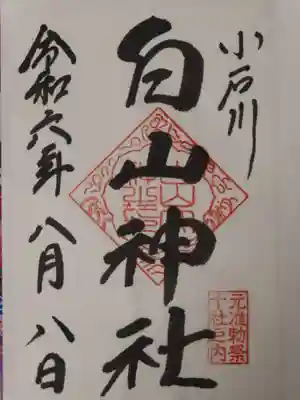 小石川
白山神社
元准勅祭
十社之内
令和六年 八月 八日